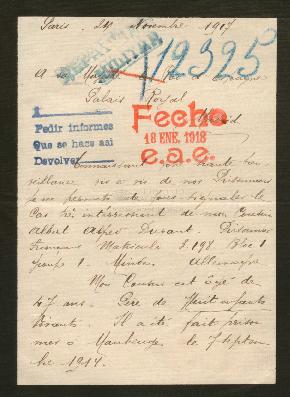 Paris, 29 Novembre 1917
12395
A sa Majesté
Palais Royal
Madrid
Fecho
18 ENE. 1918
c.a.e.
1
Pedir informes
Que se hace asi
Devolver
Connaissant
veillance, vis à vis de nos Prisonniers
je me permets de vous signaler le
Cas très intéressant de mon Cousin
Albert Durant. Prisonnier
Matricule 3.198 Bloc 1
groupe 1. Minden Allemagne
Mon Cousin est âgé de
47 ans. Père de Huit enfants
Vivants. Il a été fait prison
nier à Maubeuge le 7 Septem
bre 1914.